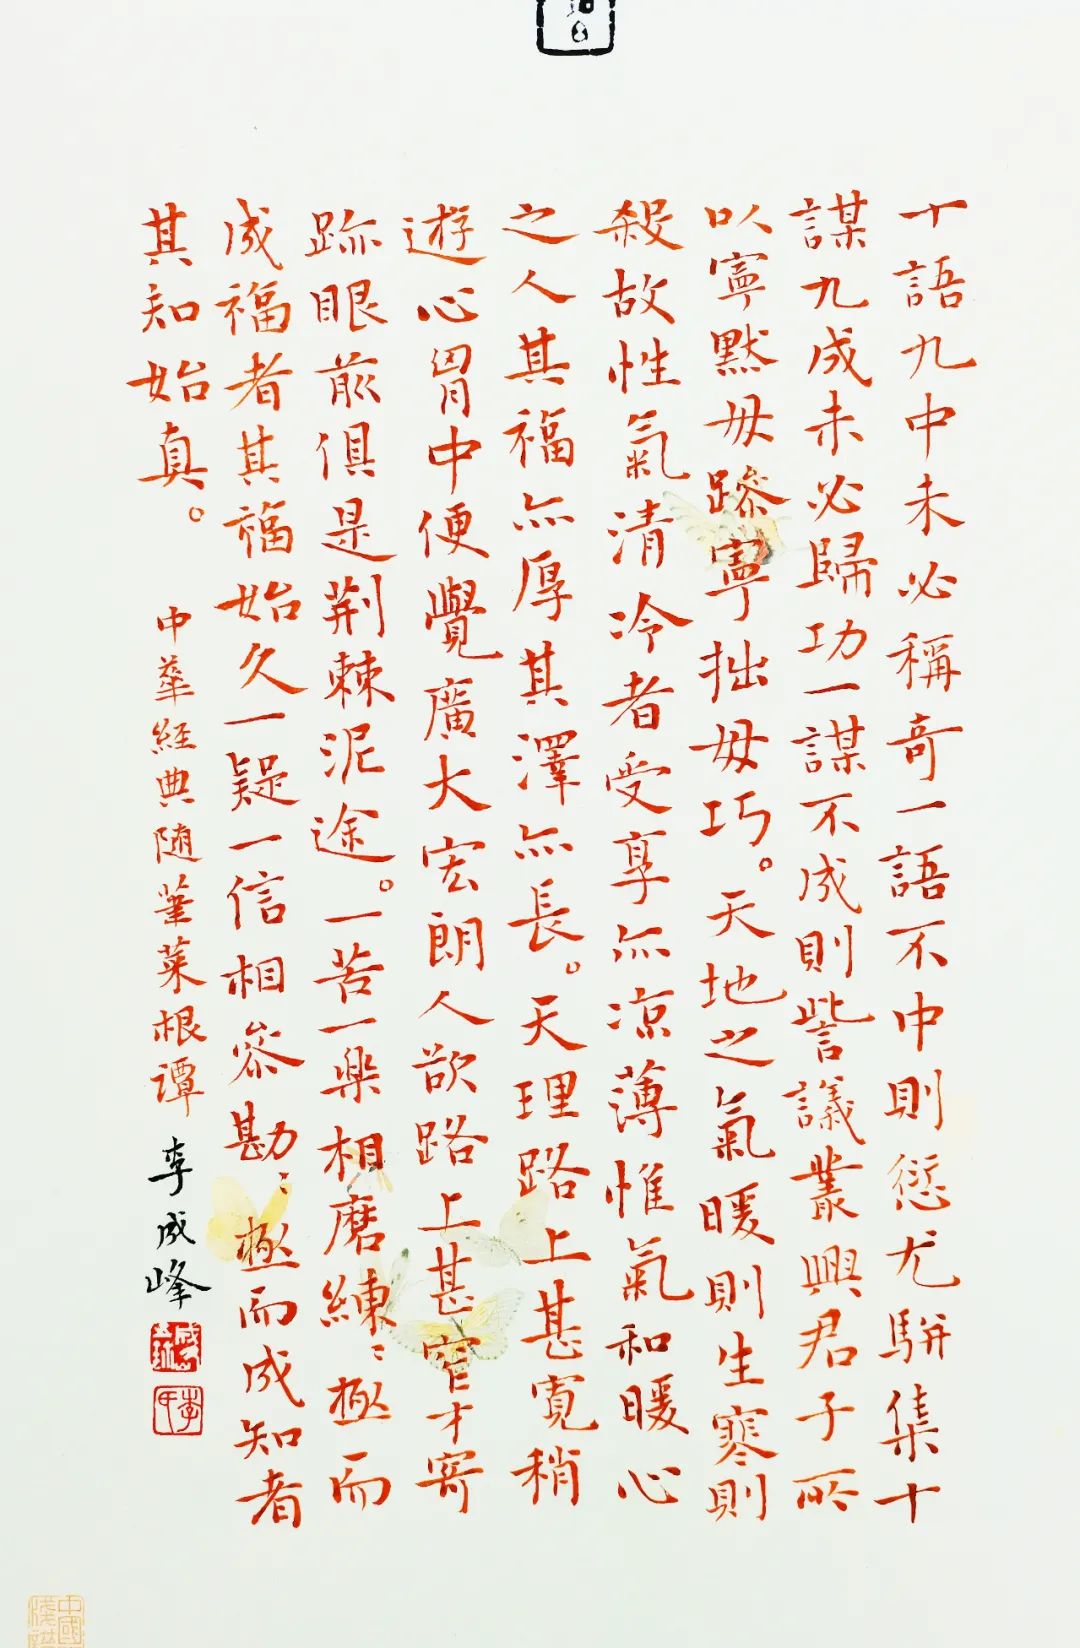 十語九中未必稱奇一語不中則愆尤駢集十
謀九成未必歸功一謀不成則訾議叢興君子所
以寧默毋躁寧拙毋巧。天地之氣暖則生寒則
殺故性氣清冷者受享亦凉薄惟氣和暖心
之人其福亦厚其澤亦長。天理路上甚寬稍
遊心胷中便覺廣大宏朗人欲路上甚窄才寄
跡眼前俱是荆棘泥途。一苦一樂相磨練〻極而
成福者其福始久一疑一信相參勘〻極而成知者
其知始真。
中華經典随筆菜根譚 李成峰